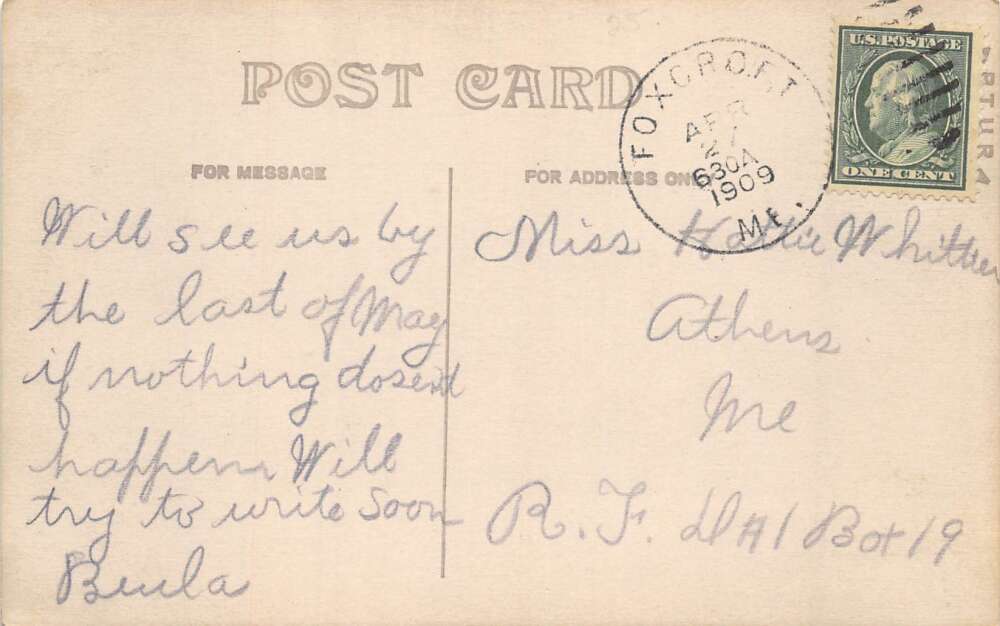 POST CARD
FOXCROFT
APR
27
630A
1909
ME.
U.S. POSTAGE
ONE CENT
FOR MESSAGE
FOR ADDRESS ONLY
Will see us by
the last of May
if nothing dosent
happen Will
try to write soon
Beula
Miss Hattie Whittier
Athens
Me
R. F. D #1 Box 19